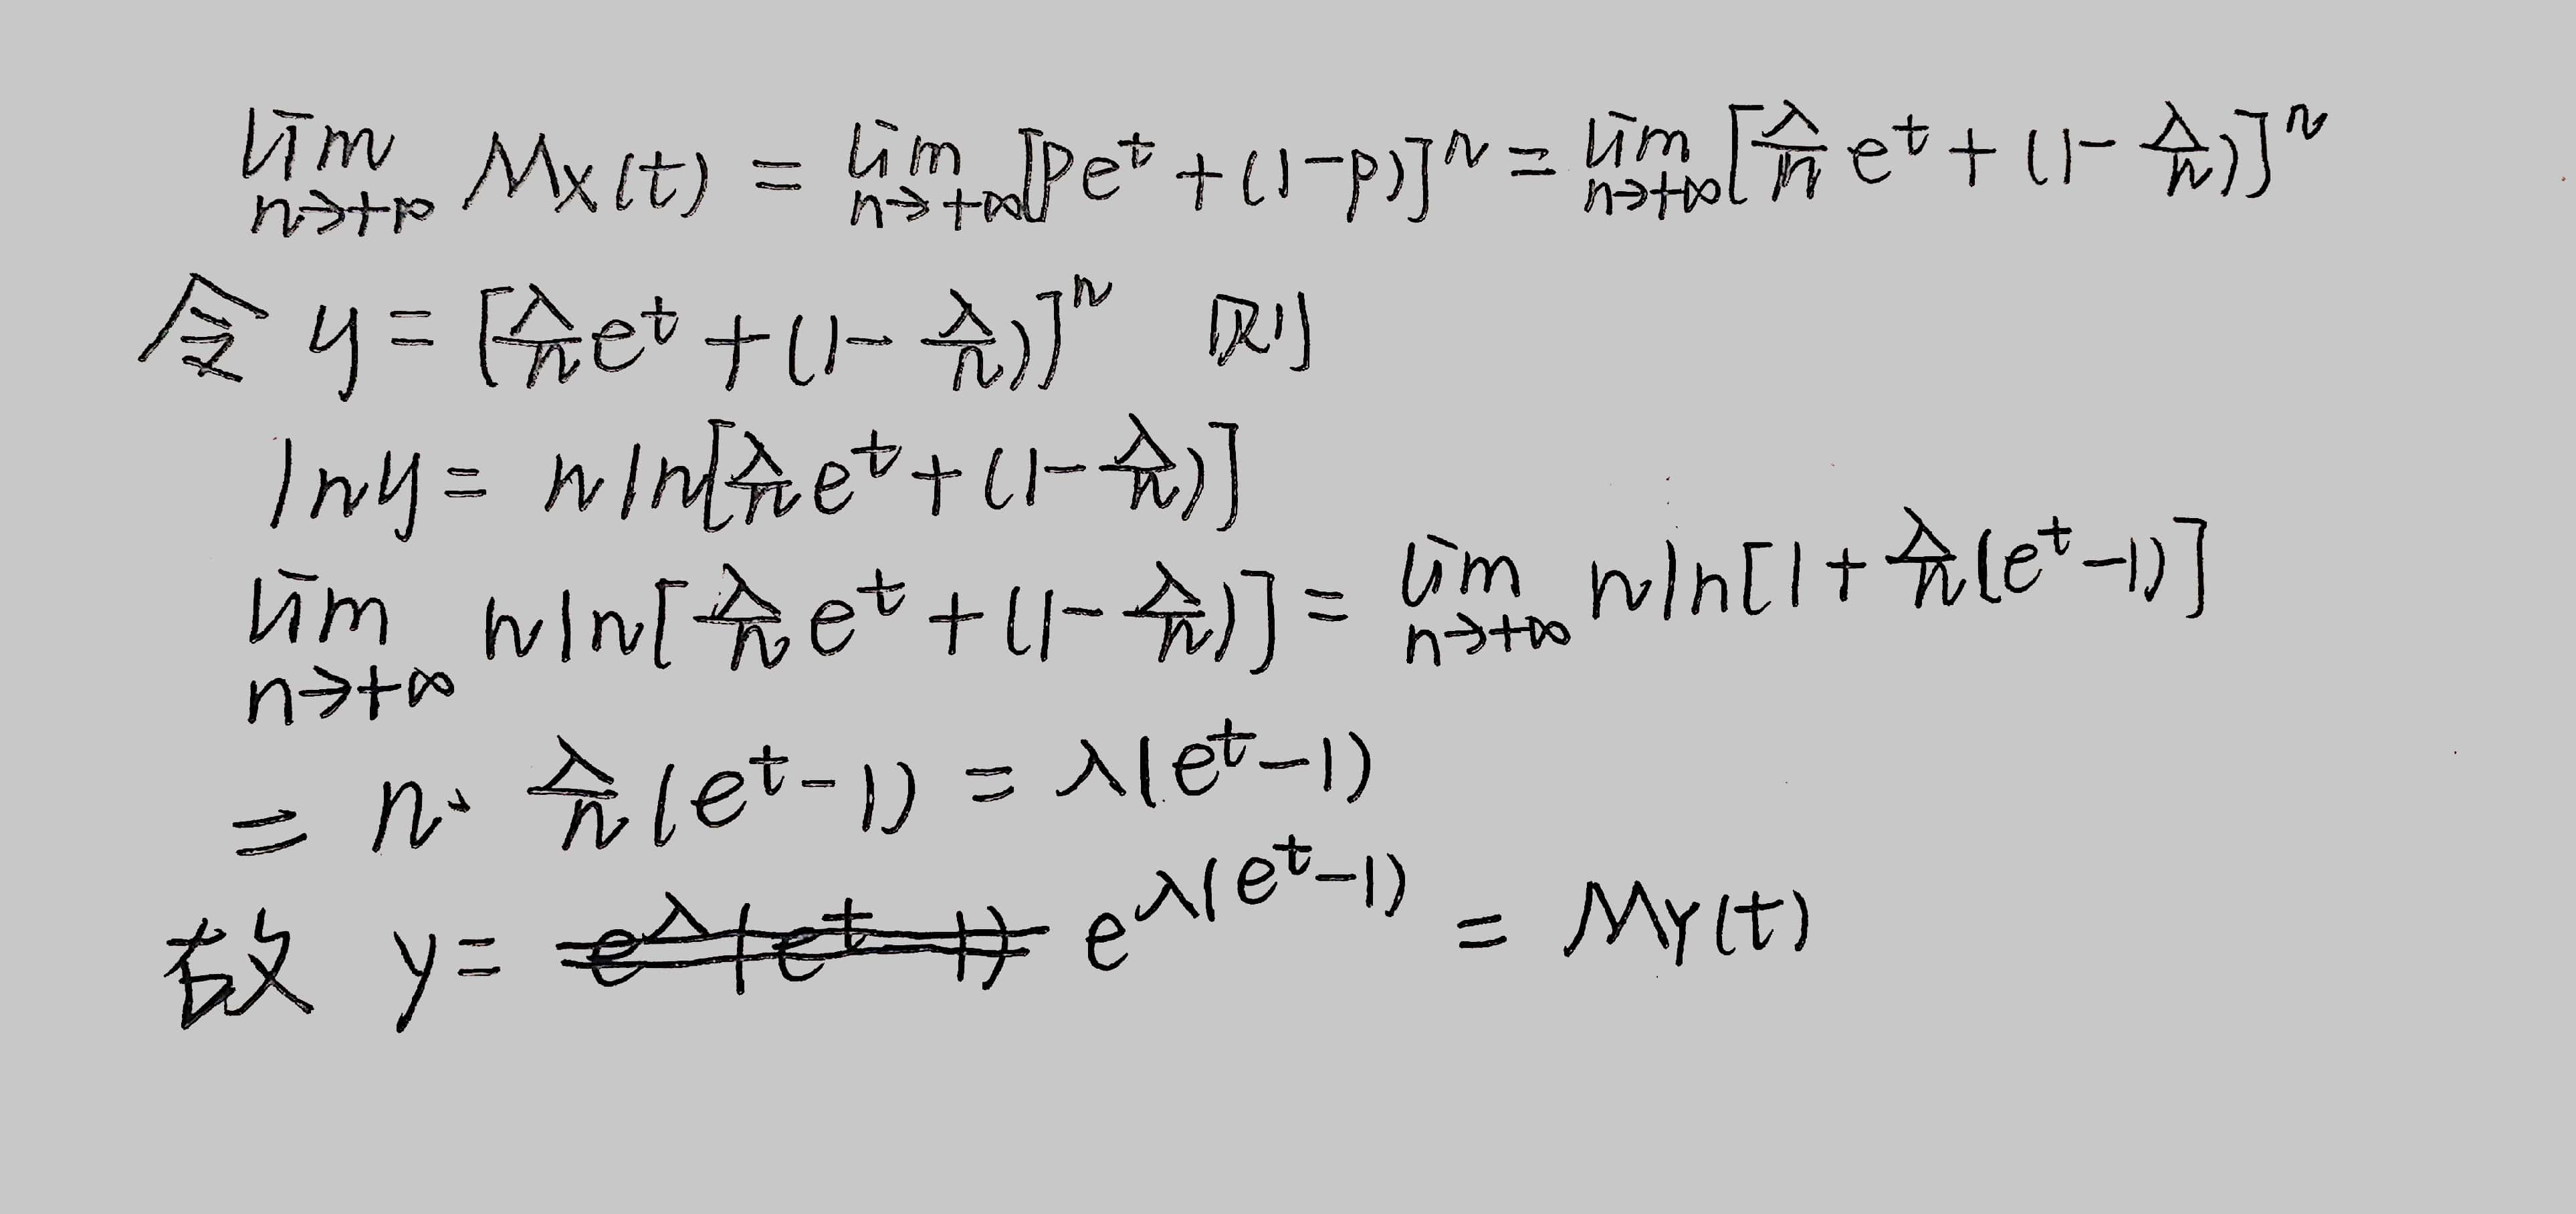 lim n→+∞ Mx(t) = lim n→+∞ [pe^t + (1-p)]^n = lim n→+∞ [λ/n e^t + (1-λ/n)]^n
令 y = [λ/n e^t + (1-λ/n)]^n 则
lny = nln[λ/n e^t + (1-λ/n)]
lim n→+∞ nln[λ/n e^t + (1-λ/n)] = lim n→+∞ nln[1+λ/n(e^t-1)]
= n· λ/n(e^t-1) = λ(e^t-1)
故 y= e^λ(e^t-1) e^{λ(e^t-1)} = MY(t)